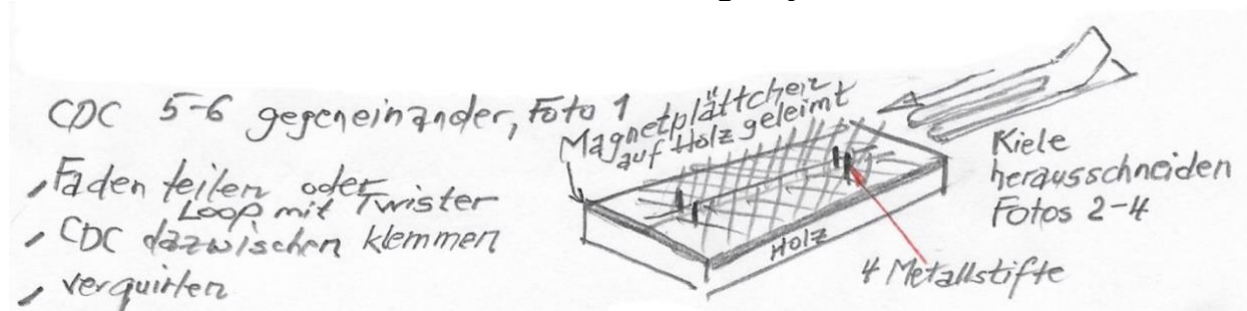 CDC 5-6 gegeneinander, Foto 1
Faden teilen oder
Loop mit Twister
CDC dazwischen klemmen
verquirlen
Magnetplättchen
auf Holz geleimt
Holz
4 Metallstifte
Kiele
herausschneiden
Fotos 2-4